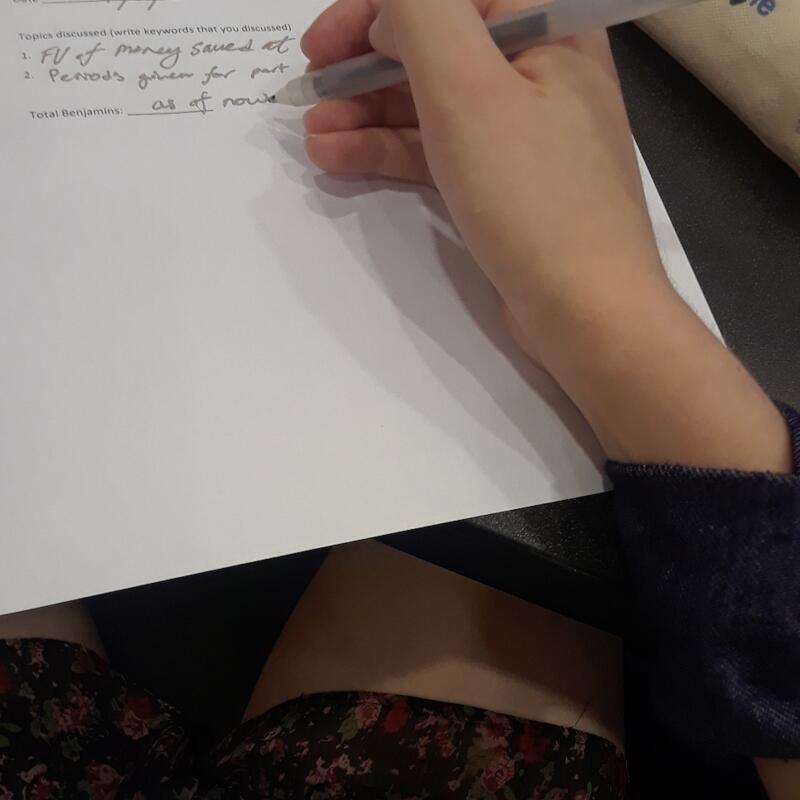 Topics discussed (write keywords that you discussed)
1. FV of money saved at
2. Periods given for part
Total Benjamins: as of now